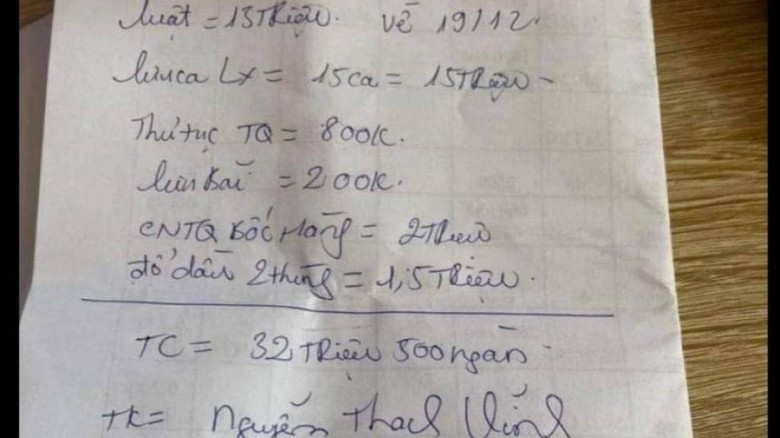 luật = 13 Triệu. Về 19/12.
Lx = 15ca = 15 Triệu -
Thủ tục TQ = 800K.
bãi = 200K.
CNTQ Bốc Hàng = 2 Triệu
đổ dầu 2 thùng = 1,5 Triệu.
TC = 32 Triệu 500 ngàn
TK = Nguyễn Thạch